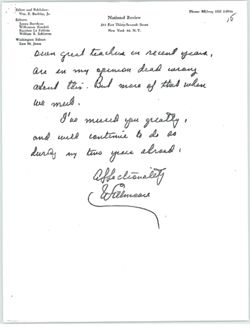 Editor and Publisher:
Wm. F. Buckley, Jr.
Editors:
James Burnham
Willmoore Kendall
Suzanne La Follette
William S. Schlamm
Washington Editor:
L. Brent Bozell
National Review
New York 16, N.Y.
down great teachers in recent years,
are in my opinion dead wrong
about this. But more of that when
we meet.
I've missed you greatly,
and will continue to do so
during my two years abroad.
Affectionately
Willmoore